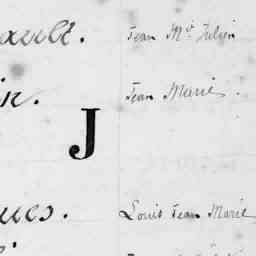 ault. Jean Mie Julien
in. Jean Marie.
J
ues. Louis Jean Marie